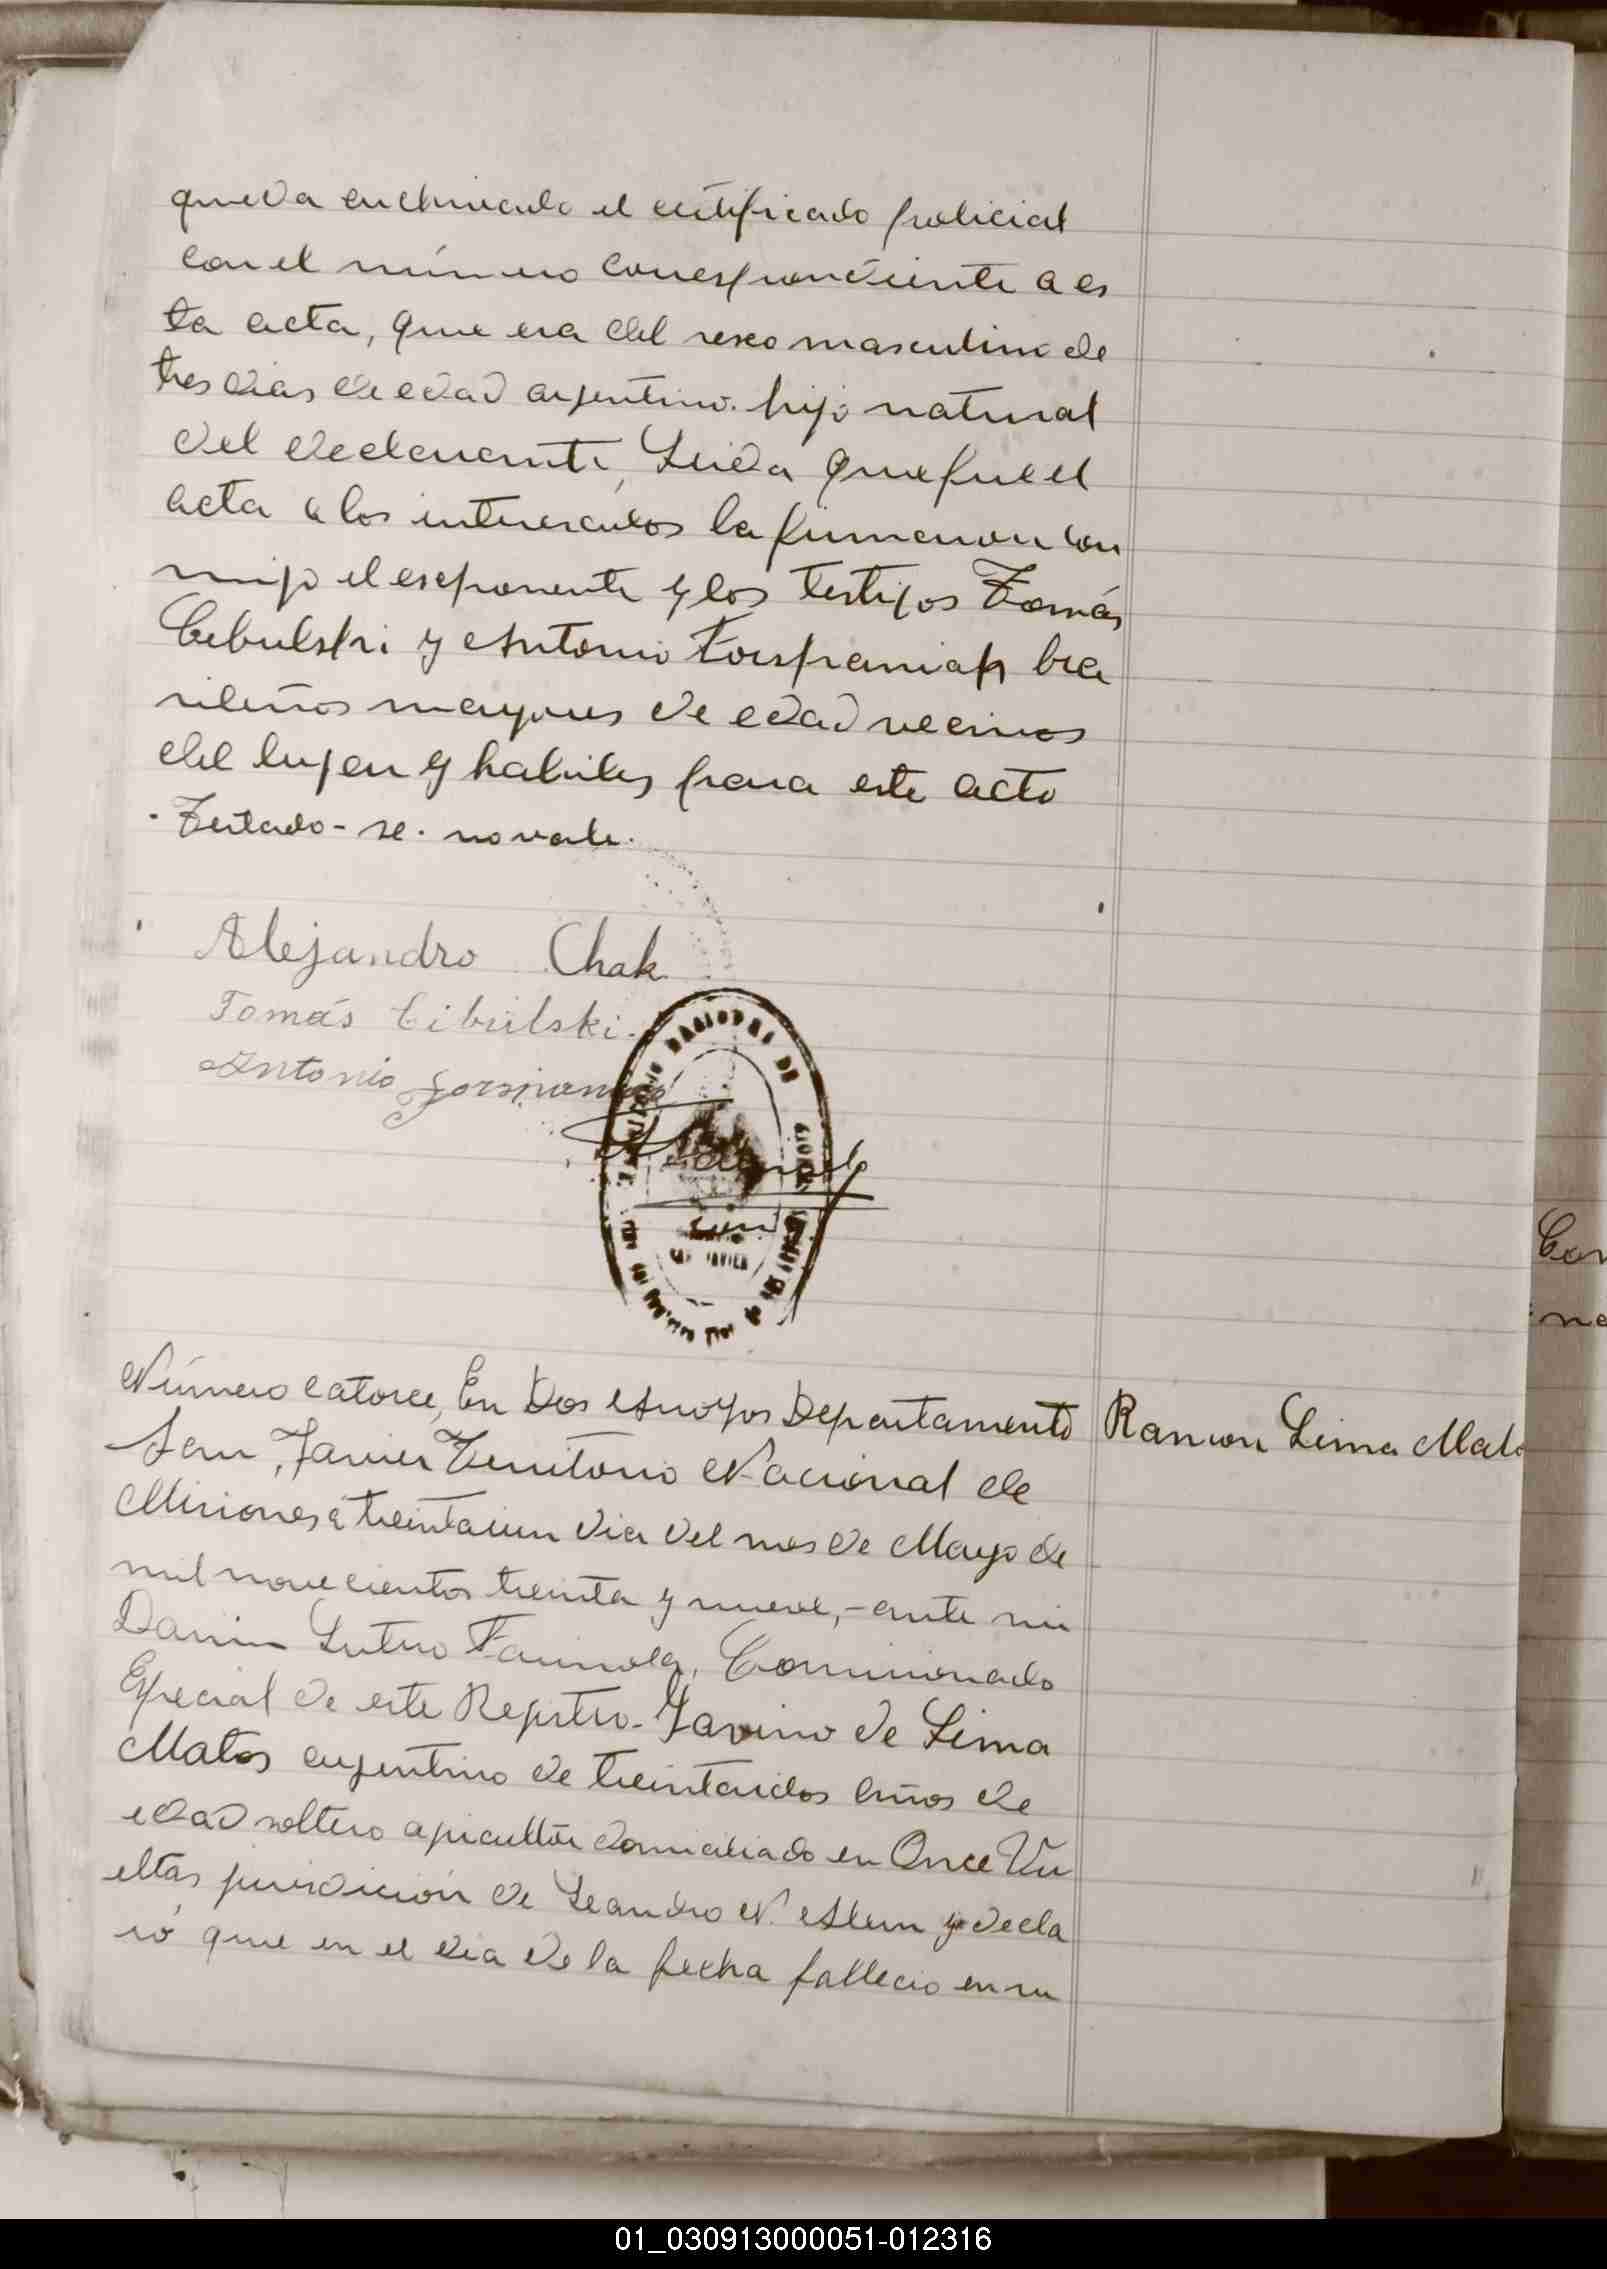 queda archivado el certificado policial
con el número correspondiente a es
ta acta, que era del sexo masculino de
tres dias de edad argentino. hijo natural
del declarante, Leida que fue el
acta a los interesados la firmaron con
migo el exponente y los testigos Tomás
Cibulski y Antonio bra
sileños mayores de edad vecinos
del lugar y habiles para este acto
Testado - se. no vale.
Alejandro Chak
Tomás Cibulski.
Antonio
NACIONAL DE
SAN JAVIER
Número catorce, En Dos Arroyos Departamento
San Javier Territorio Nacional de
Misiones á treintaiun dia del mes de Mayo de
mil novecientos treinta y nueve, - ante mi
Lutero Comisionado
Especial de este Registro - Javino de Lima
Matos argentino de treintaidos años de
edad soltero agricultor domiciliado en Once Vu
eltas jurisdición de Leandro N. Alem y decla
ró que en el dia de la fecha fallecio en su
Ramon Lima Mato